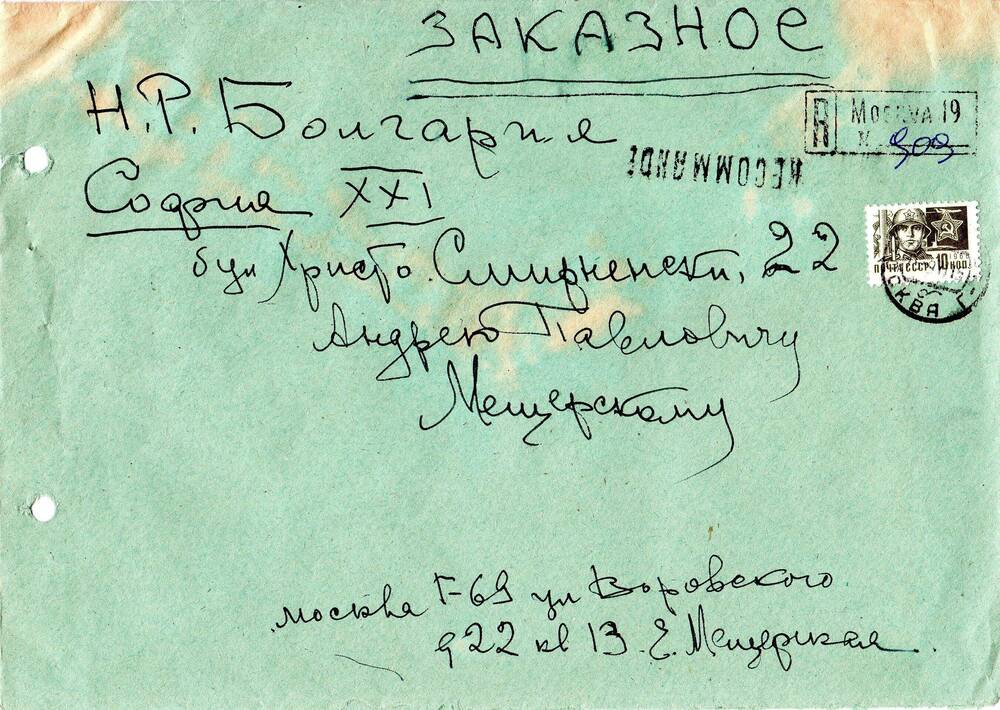 ЗАКАЗНОЕ
Н.Р. Болгария
R Moskva 19
N 909
RECOMMANDÉ
София XXI
бул Христо Смирненски, 22
почта СССР 10 коп
МОСКВА Г
Андрею Павловичу
Мещерскому
Москва Г-69 ул Воровского
д 22 кв 13. Е. Мещерская.